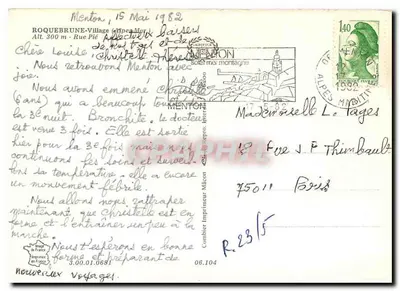 Menton, 15 Mai 1982
ROQUEBRUNE-Village
Alt. 300 m - Rue Pié
Affectueux baisers
de nous trois et de
Christelle Thérèse
Chère Louise,
Nous retrouvons Menton avec
joie.
Nous avons emmené Christelle
(6 ans) qui a beaucoup toussé
la 3e nuit. Bronchite. le docteur
est venu 3 fois. Elle est sortie
hier pour la 3e fois mais nous
continuons les soins et surveillons
sa température. elle a encore
un mouvement fébrile.
Nous allons nous rattraper
maintenant que Christelle est en
forme et l'entraîner un peu à la
marche.
Nous t'espérons en bonne
forme et préparant de
nouveaux voyages.
3.00.01.0681
06.104
Combier Imprimeur Mâcon
MENTON
mer montagne
MENTON
1,40
ALPES
1982
Mademoiselle L. Pages
18 Rue J F Thimbault
75011 Paris
R. 23/5